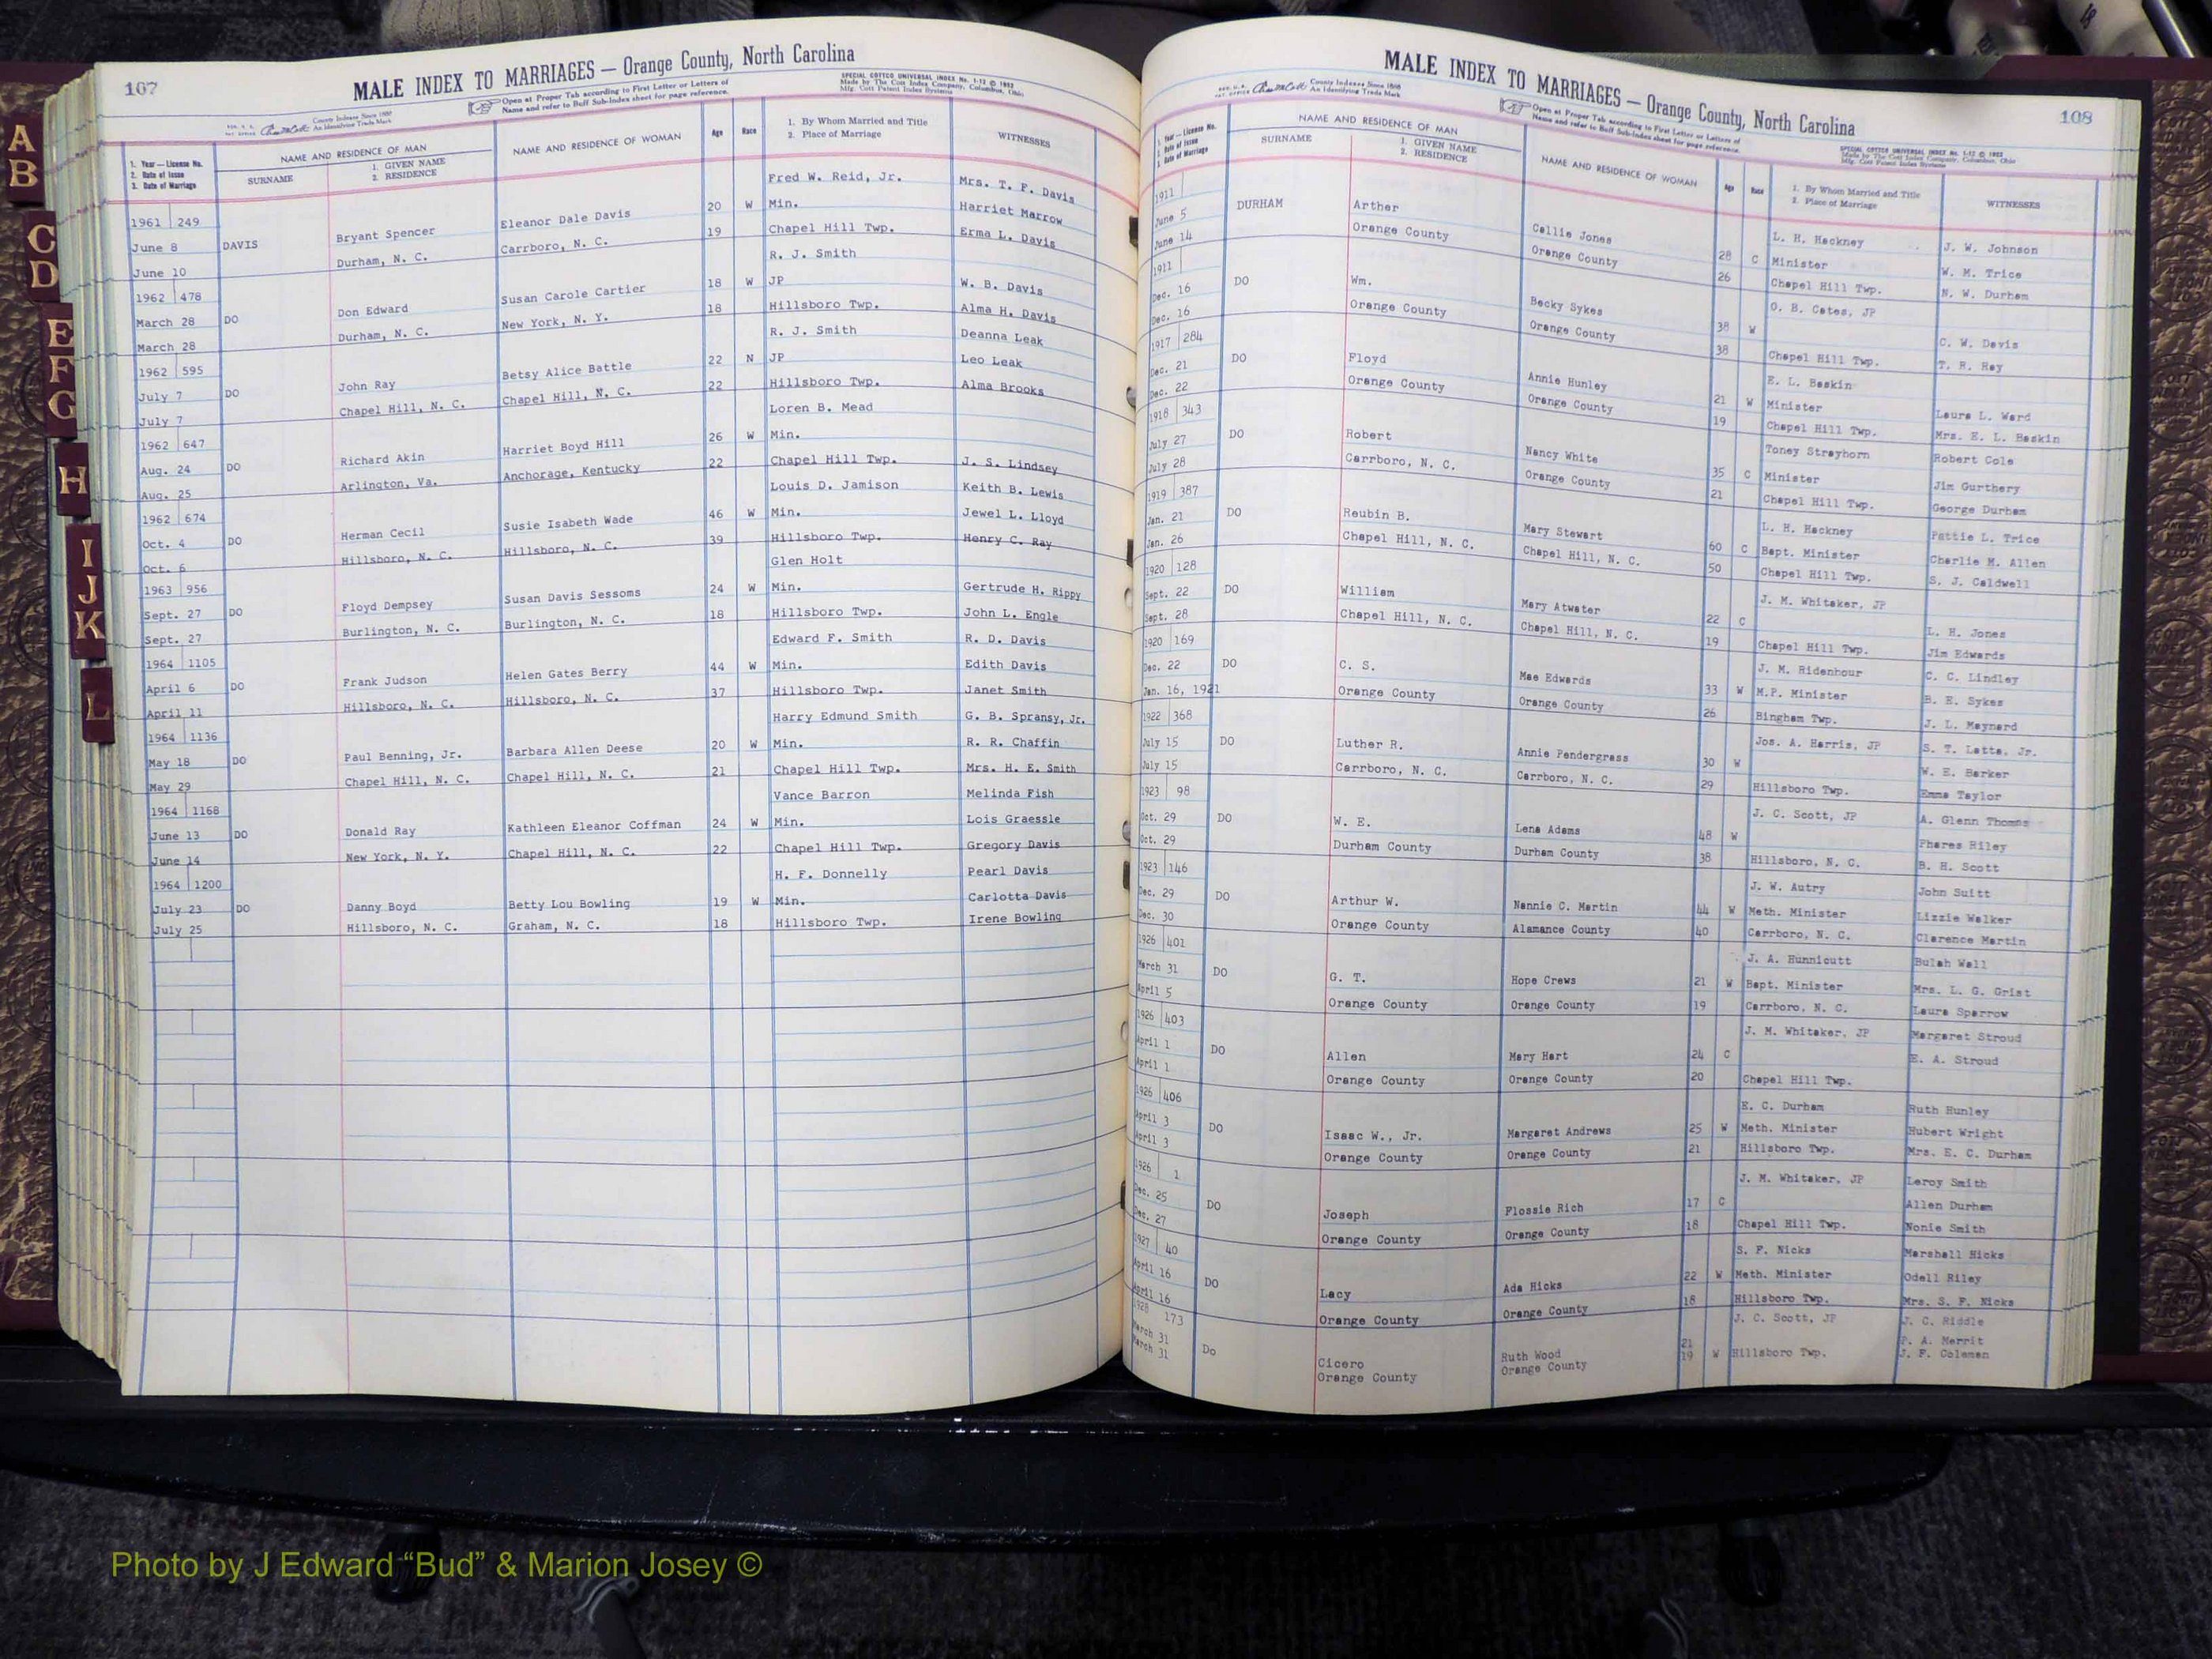 A
B
C
D
E
F
G
H
I
J
K
L
107
MALE INDEX TO MARRIAGES — Orange County, North Carolina
Open at Proper Tab according to First Letter or Letters of
Name and refer to Buff Sub-Index sheet for page reference.
SPECIAL COTTCO UNIVERSAL INDEX No. 1-12 © 1952
Made by The Cott Index Company, Columbus, Ohio
Mfg. Cott Patent Index Systems
County Indexes Since 1888
An Identifying Trade Mark
1. Year — License No.
2. Date of Issue
3. Date of Marriage
NAME AND RESIDENCE OF MAN
SURNAME
1. GIVEN NAME
2. RESIDENCE
NAME AND RESIDENCE OF WOMAN
Age
Race
1. By Whom Married and Title
2. Place of Marriage
WITNESSES
Fred W. Reid, Jr. Mrs. T. F. Davis
1961 249 Bryant Spencer Eleanor Dale Davis 20 W Min. Harriet Marrow
June 8 DAVIS Durham, N. C. Carrboro, N. C. 19 Chapel Hill Twp. Erma L. Davis
June 10
R. J. Smith
1962 478 Don Edward Susan Carole Cartier 18 W JP W. B. Davis
March 28 DO Durham, N. C. New York, N. Y. 18 Hillsboro Twp. Alma H. Davis
March 28
R. J. Smith Deanna Leak
1962 595 John Ray Betsy Alice Battle 22 N JP Leo Leak
July 7 DO Chapel Hill, N. C. Chapel Hill, N. C. 22 Hillsboro Twp. Alma Brooks
July 7
Loren B. Mead
1962 647 Richard Akin Harriet Boyd Hill 26 W Min.
Aug. 24 DO Arlington, Va. Anchorage, Kentucky 22 Chapel Hill Twp. J. S. Lindsey
Aug. 25
Louis D. Jamison Keith B. Lewis
1962 674 Herman Cecil Susie Isabeth Wade 46 W Min. Jewel L. Lloyd
Oct. 4 DO Hillsboro, N. C. Hillsboro, N. C. 39 Hillsboro Twp. Henry C. Ray
Oct. 6
Glen Holt
1963 956 Floyd Dempsey Susan Davis Sessoms 24 W Min. Gertrude H. Rippy
Sept. 27 DO Burlington, N. C. Burlington, N. C. 18 Hillsboro Twp. John L. Engle
Sept. 27
Edward F. Smith R. D. Davis
1964 1105 Frank Judson Helen Gates Berry 44 W Min. Edith Davis
April 6 DO Hillsboro, N. C. Hillsboro, N. C. 37 Hillsboro Twp. Janet Smith
April 11
Harry Edmund Smith G. B. Spransy, Jr.
1964 1136 Paul Benning, Jr. Barbara Allen Deese 20 W Min. R. R. Chaffin
May 18 DO Chapel Hill, N. C. Chapel Hill, N. C. 21 Chapel Hill Twp. Mrs. H. E. Smith
May 29
Vance Barron Melinda Fish
1964 1168 Donald Ray Kathleen Eleanor Coffman 24 W Min. Lois Graessle
June 13 DO New York, N. Y. Chapel Hill, N. C. 22 Chapel Hill Twp. Gregory Davis
June 14
H. F. Donnelly Pearl Davis
1964 1200 Danny Boyd Betty Lou Bowling 19 W Min. Carlotta Davis
July 23 DO Hillsboro, N. C. Graham, N. C. 18 Hillsboro Twp. Irene Bowling
July 25
MALE INDEX TO MARRIAGES — Orange County, North Carolina
108
County Indexes Since 1888
An Identifying Trade Mark
Open at Proper Tab according to First Letter or Letters of
Name and refer to Buff Sub-Index sheet for page reference.
SPECIAL COTTCO UNIVERSAL INDEX No. 1-12 © 1952
Made by The Cott Index Company, Columbus, Ohio
Mfg. Cott Patent Index Systems
1. Year — License No.
2. Date of Issue
3. Date of Marriage
NAME AND RESIDENCE OF MAN
SURNAME
1. GIVEN NAME
2. RESIDENCE
NAME AND RESIDENCE OF WOMAN
Age
Race
1. By Whom Married and Title
2. Place of Marriage
WITNESSES
1911 L. H. Hackney J. W. Johnson
June 5 DURHAM Arther Callie Jones 28 C Minister W. M. Trice
June 14 Orange County Orange County 26 Chapel Hill Twp. N. W. Durham
1911 O. B. Cates, JP
Dec. 16 DO Wm. Becky Sykes 38 W C. W. Davis
Dec. 16 Orange County Orange County 38 Chapel Hill Twp. T. R. Ray
1917 284 E. L. Baskin
Dec. 21 DO Floyd Annie Hunley 21 W Minister Laura L. Ward
Dec. 22 Orange County Orange County 19 Chapel Hill Twp. Mrs. E. L. Baskin
1918 343 Toney Strayhorn Robert Cole
July 27 DO Robert Nancy White 35 C Minister Jim Gurthery
July 28 Carrboro, N. C. Orange County 21 Chapel Hill Twp. George Durham
1919 387 L. H. Hackney Pattie L. Trice
Jan. 21 DO Reubin B. Mary Stewart 60 C Bapt. Minister Charlie M. Allen
Jan. 26 Chapel Hill, N. C. Chapel Hill, N. C. 50 Chapel Hill Twp. S. J. Caldwell
1920 128 J. M. Whitaker, JP
Sept. 22 DO William Mary Atwater 22 C L. H. Jones
Sept. 28 Chapel Hill, N. C. Chapel Hill, N. C. 19 Chapel Hill Twp. Jim Edwards
1920 169 J. M. Ridenhour C. C. Lindley
Dec. 22 DO C. S. Mae Edwards 33 W M.P. Minister B. E. Sykes
Jan. 16, 1921 Orange County Orange County 26 Bingham Twp. J. L. Maynard
1922 368 Jos. A. Harris, JP S. T. Latta, Jr.
July 15 DO Luther R. Annie Pendergrass 30 W W. E. Barker
July 15 Carrboro, N. C. Carrboro, N. C. 29 Hillsboro Twp. Emma Taylor
1923 98 J. C. Scott, JP A. Glenn Thomas
Oct. 29 DO W. E. Lena Adams 48 W Phares Riley
Oct. 29 Durham County Durham County 38 Hillsboro, N. C. B. H. Scott
1923 146 J. W. Autry John Suitt
Dec. 29 DO Arthur W. Nannie C. Martin 44 W Meth. Minister Lizzie Walker
Dec. 30 Orange County Alamance County 40 Carrboro, N. C. Clarence Martin
1926 401 J. A. Hunnicutt Bulah Wall
March 31 DO G. T. Hope Crews 21 W Bapt. Minister Mrs. L. G. Grist
April 5 Orange County Orange County 19 Carrboro, N. C. Laura Sparrow
1926 403 J. M. Whitaker, JP Margaret Stroud
April 1 DO Allen Mary Hart 24 C E. A. Stroud
April 1 Orange County Orange County 20 Chapel Hill Twp.
1926 406 E. C. Durham Ruth Hunley
April 3 DO Isaac W., Jr. Margaret Andrews 25 W Meth. Minister Hubert Wright
April 3 Orange County Orange County 21 Hillsboro Twp. Mrs. E. C. Durham
1926 1 J. M. Whitaker, JP Leroy Smith
Dec. 25 DO Joseph Flossie Rich 17 C Allen Durham
Dec. 27 Orange County Orange County 18 Chapel Hill Twp. Nonie Smith
1927 40 S. F. Nicks Marshall Hicks
April 16 DO Lacy Ada Hicks 22 W Meth. Minister Odell Riley
April 16 Orange County Orange County 18 Hillsboro Twp. Mrs. S. F. Nicks
1928 173 J. C. Scott, JP J. C. Riddle
March 31 21 P. A. Merrit
March 31 Do Cicero Ruth Wood 19 W Hillsboro Twp. J. F. Coleman
Orange County Orange County
Photo by J Edward “Bud” & Marion Josey ©